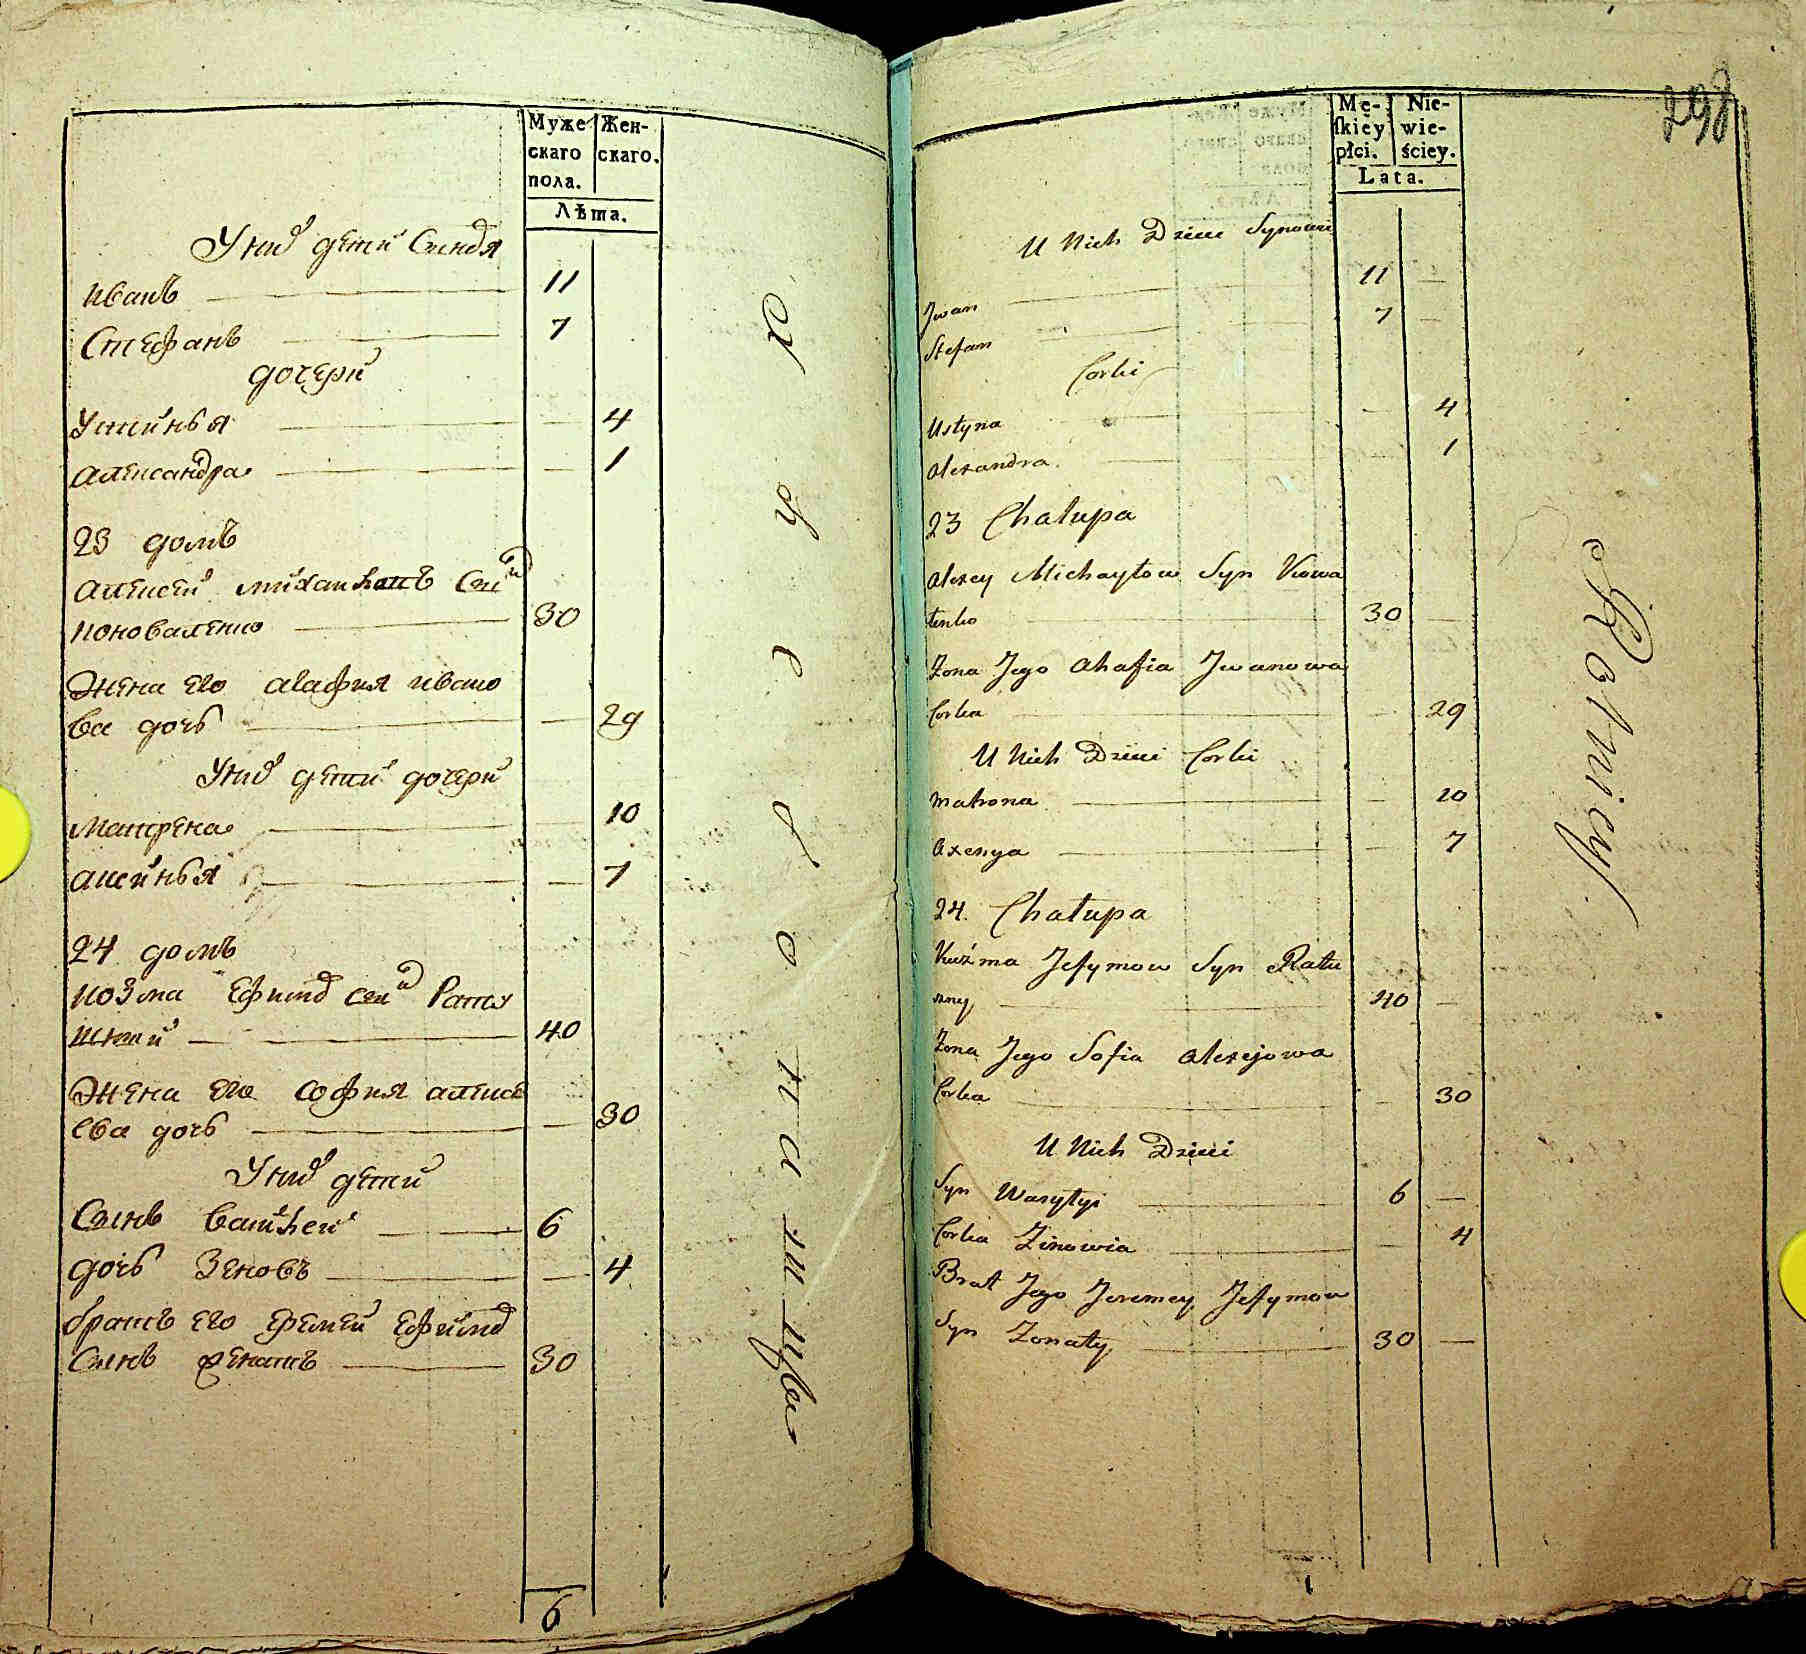 Муже
скаго
пола.
Жен-
скаго.
Лѣта.
У них дети Синовя
иванъ 11
Стефанъ 7
дочери
Устинья 4
александра 1
23 домъ
алексей михайловъ Сын
коноваленко 30
жена его агафия ивано
ва дочь 29
У них дети дочери
Матрена 10
аксинья 7
24 домъ
козма Ефимов син Рату
шной 40
жена его софия алексе
ева дочь 30
У них дети
Синъ василей 6
дочь Зеновъ 4
братъ его еремей Ефимов
Синъ 30
6
298
Mę-
skiey
płci.
Nie-
wie-
ściey.
Lata.
U Nich Dzieci Synowie
Jwan 11
Stefan 7
Corki
Ustyna 4
Alexandra 1
23 Chałupa
Alexey Michayłow Syn Kowa
lenko 30
Żona Jego Ahafia Jwanowa
Corka 29
U Nich Dzieci Corki
Matrona 10
Axenya 7
24. Chałupa
Kuźma Jefymow Syn Ratu
szny 40
Żona Jego Sofia Alexejowa
Corka 30
U Nich Dzieci
Syn Wasyłyi 6
Corka Zinowia 4
Brat Jego Jeremey Jefymow
Syn Zonaty 30
Rotnicy